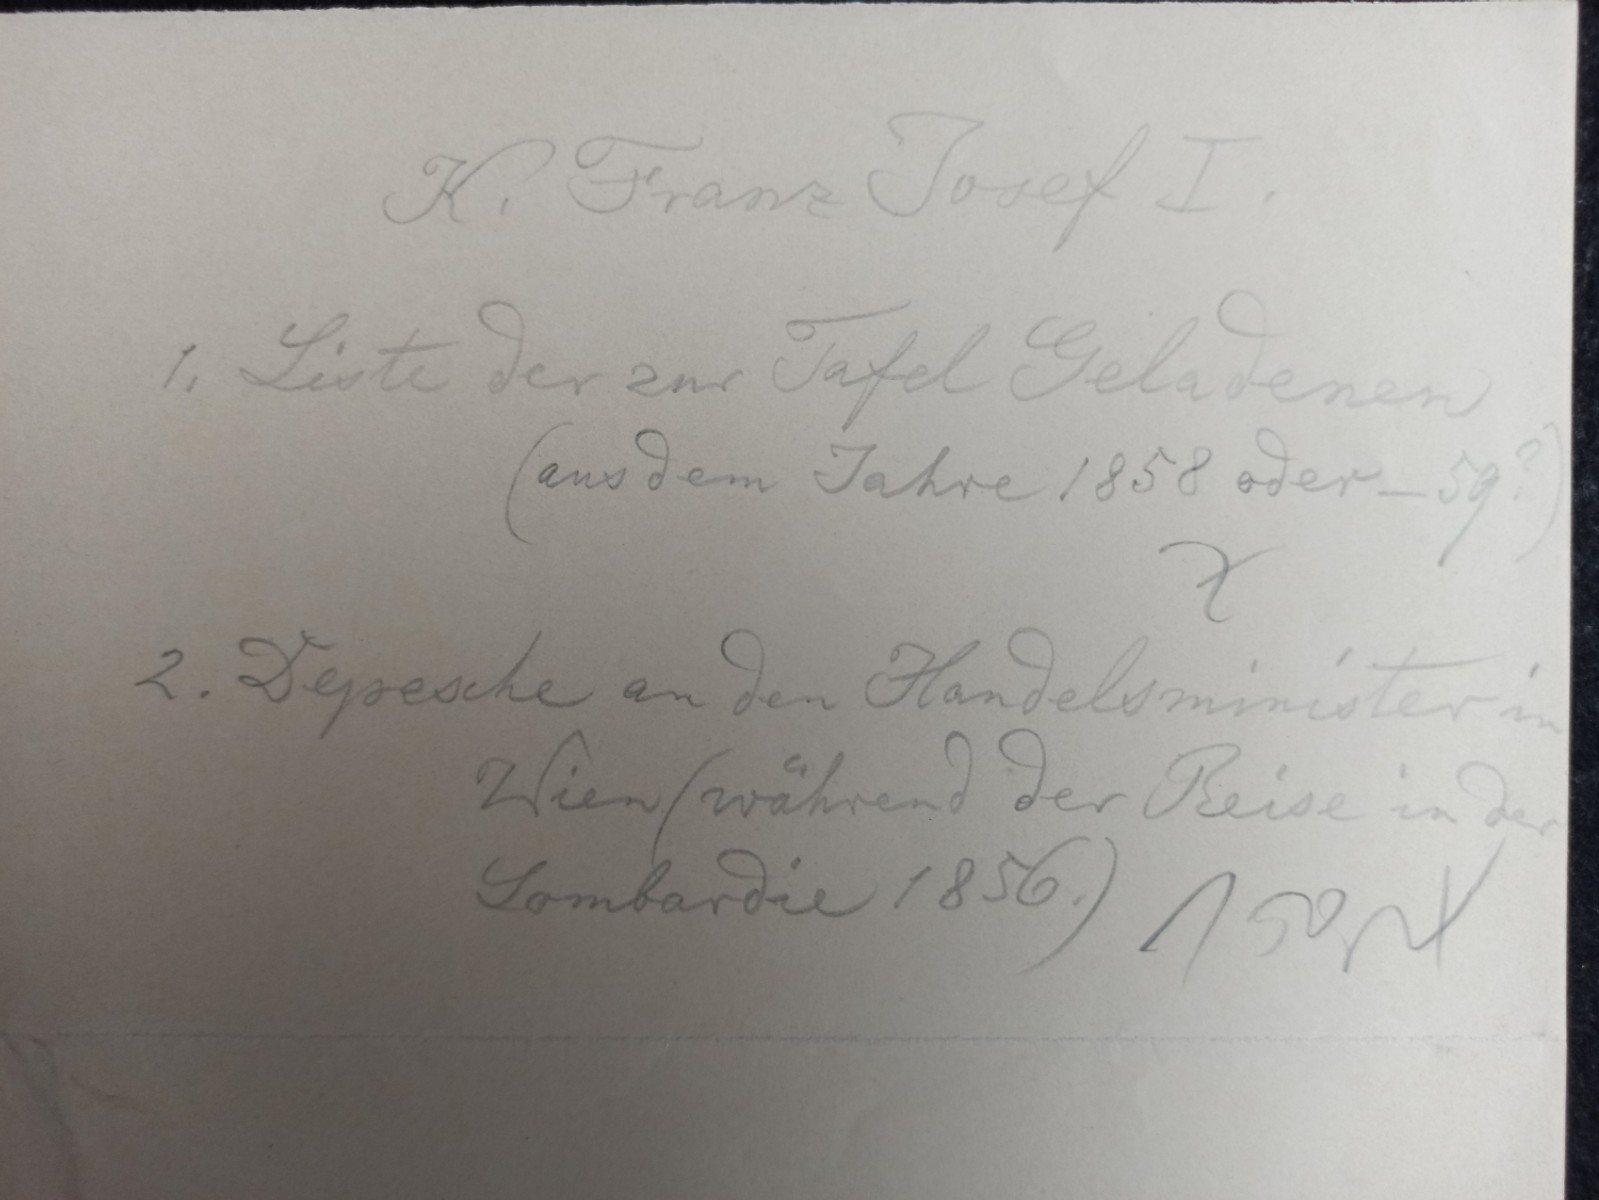 K. Franz Josef I.
1. Liste der zur Tafel Geladenen
(aus dem Jahre 1858 oder – 59?)
2. Depesche an den Handelsminister in
Wien (während der Reise in der
Lombardie 1856.)